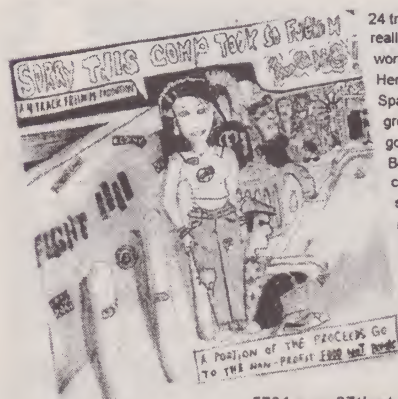 SORRY THIS COMP TOOK SO FUCKIN
LONG!
A 4 TRACK FRIENDS PROMOTION
FIGHT
A PORTION OF THE PROCEEDS GO
TO THE NON-PROFIT FOOD NOT BOMBS
24 tr
reall
wor
Her
Spa
gr
go
B
c
s